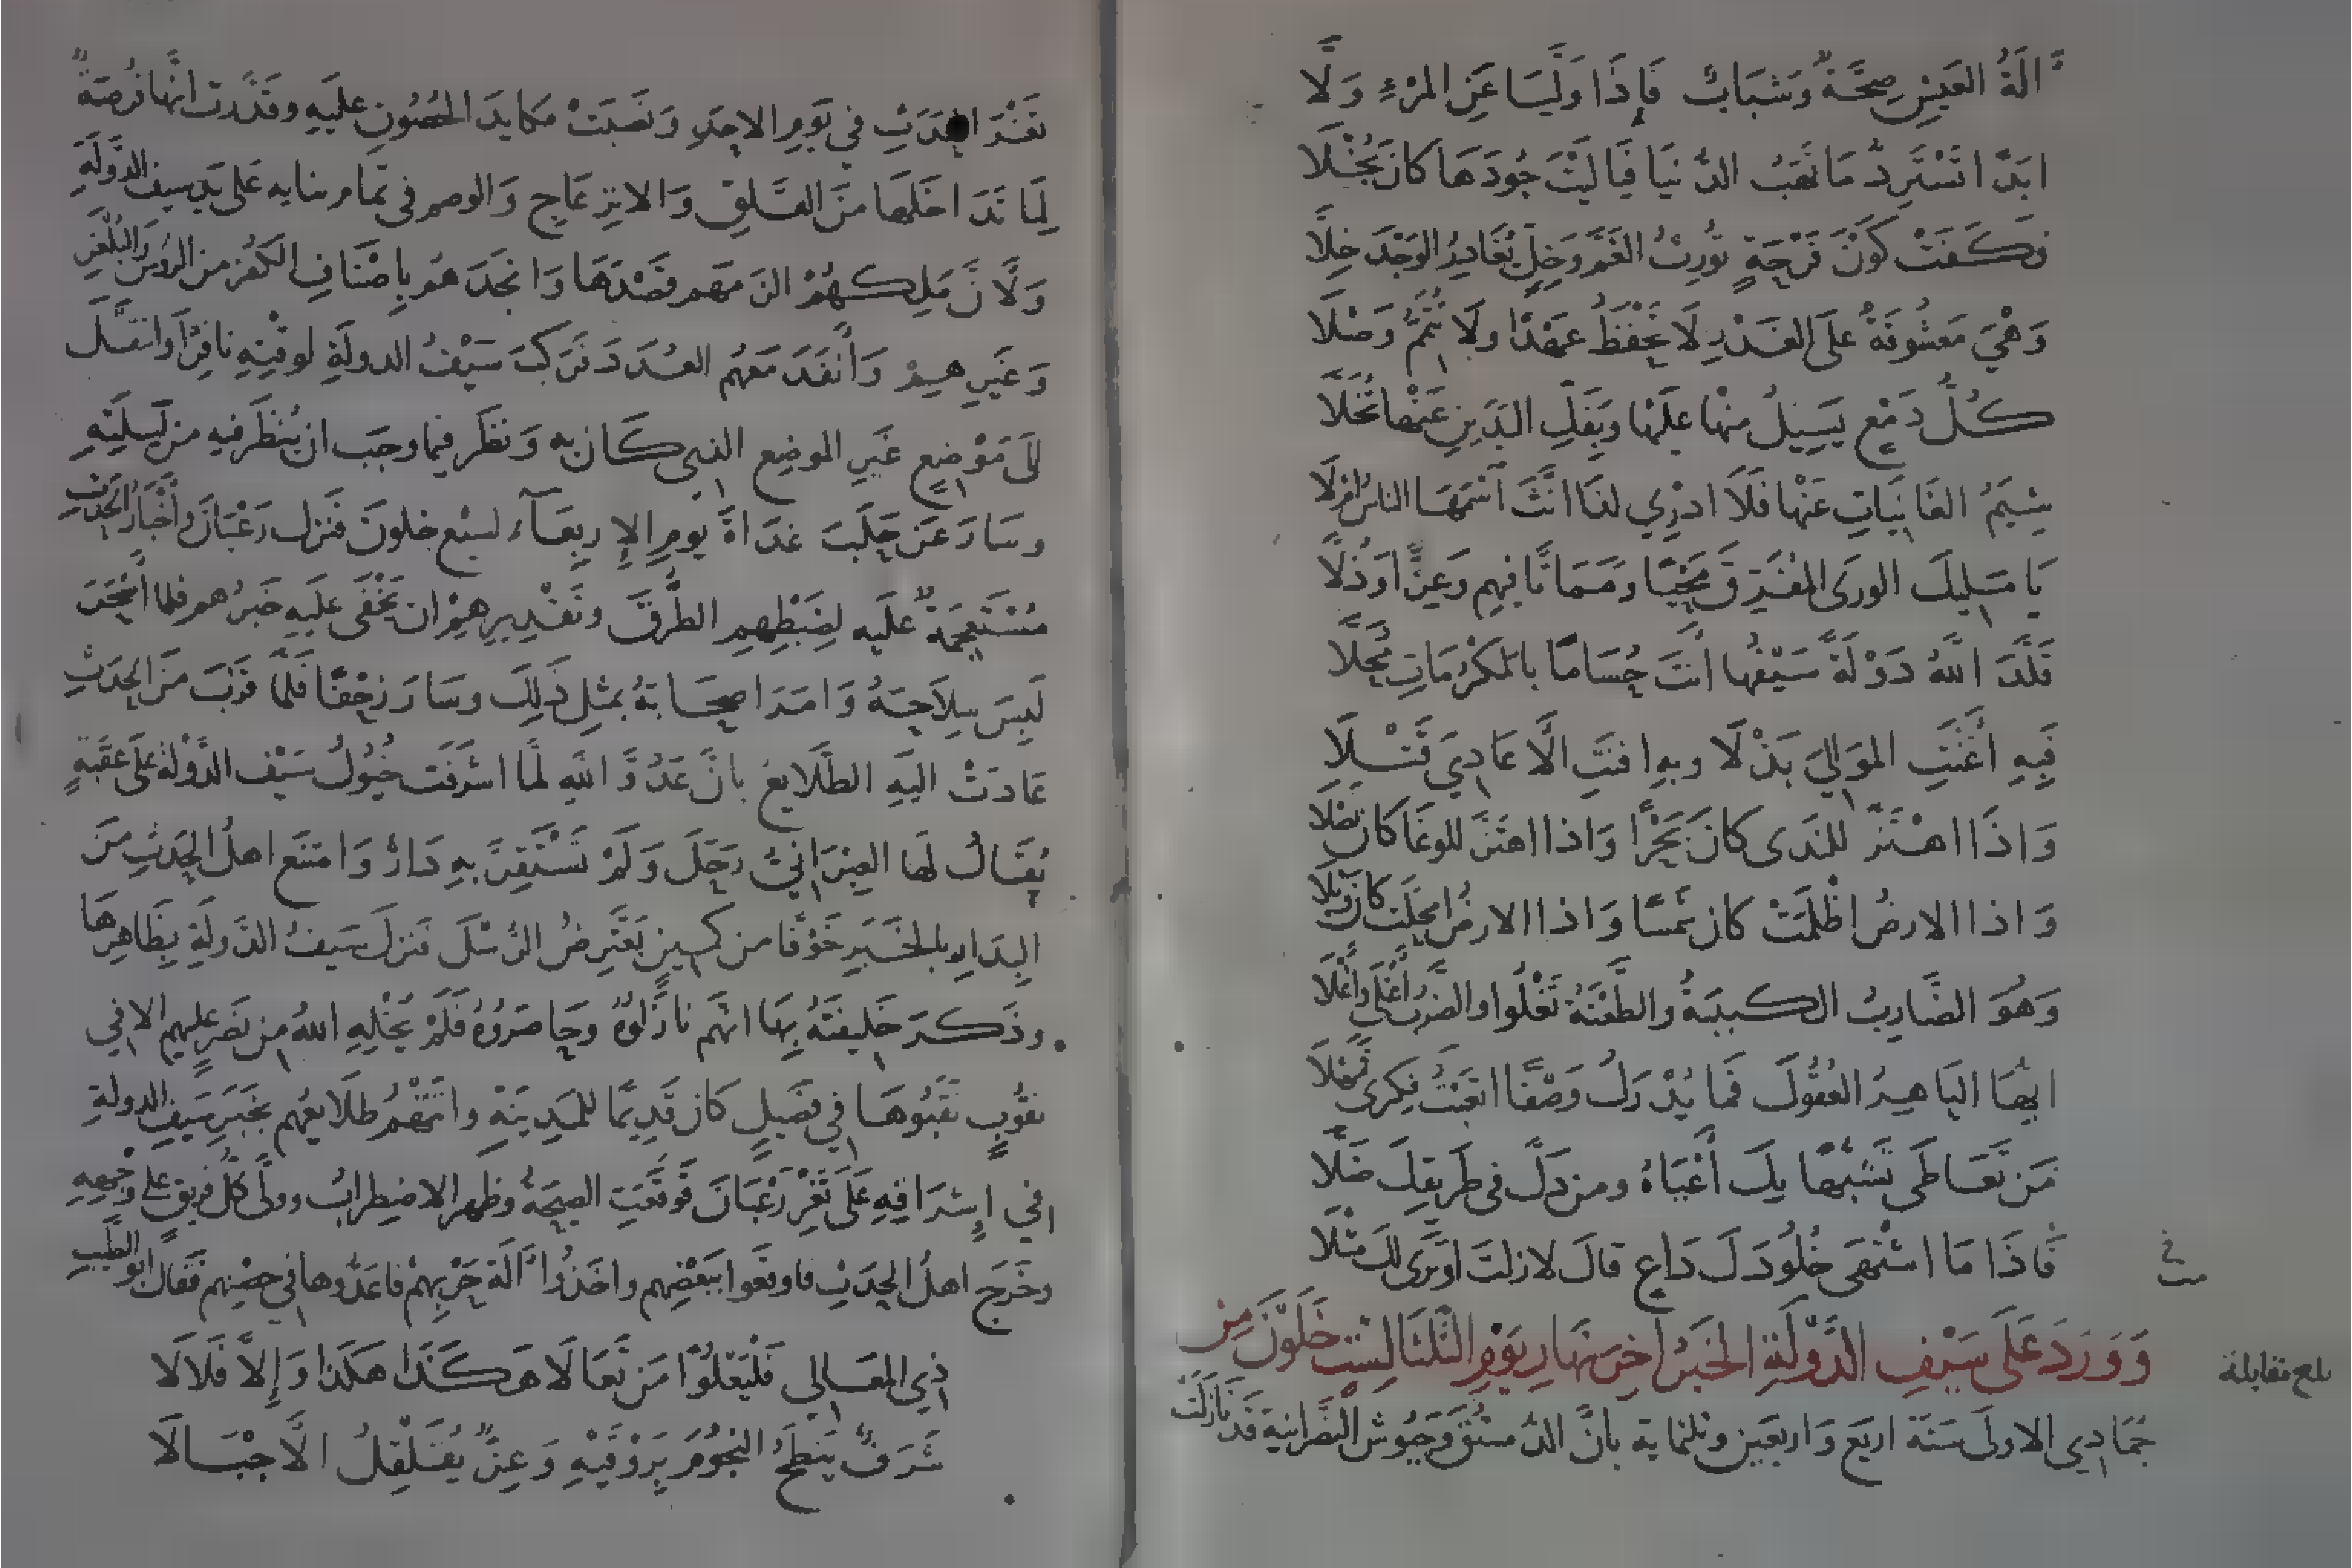 اٰلَةُ العَيْشِ صِحَّةٌ وَشَبَابٌ فَإِذَا وَلَّيَا عَنِ المَرْءِ وَلَّا
ابَدًا تَسْتَرِدُّ مَا تَهَبُ الدُّنيَا فَيَا لَيْتَ جُودَهَا كانَ بُخْلَا
فكَفَتْ كَوْنَ فَرْحَةٍ تُورِثُ الغَمَّ وَخِلٍّ يُغَادِرُ الوَجْدَ خِلَّا
وَهْيَ مَعشُوقَةٌ عَلَى الغَدْرِ لَا تَحْفَظُ عَهْدًا ولَا تُتَمُّ وَصْلَا
كُلُّ دَمْعٍ يَسِيلُ مِنْها عَلَيْها وَبِفَكِّ اليَدَينِ عَنْها تُخَلَّا
شِيَمُ الغَانِيَاتِ عَنْها فَلَا ادْرِي لذَا انَّثَ آسْمَهَا الناسُ امْ لَا
يَا مَلِيكَ الورَى المُفَرِّقَ مَحْيًا وَمَمَاتًا فيهِم وَعِزًّا وَذُلَّا
قَلَّدَ اللهُ دَوْلَةً سَيْفُها أنتَ حُسَامًا بالمَكْرُمَاتِ مُحَلَّا
فَبِهِ أغْنَتِ المَوَالِيَ بَذْلًا وبهِ افنَتِ الأَعَادِيَ قَتْلَا
وَاذَا اهْتَزَّ للنَدَى كانَ بَحْرًا وَاذا اهتَزَّ للوغَا كانَ نَصْلَا
وَاذا الارضُ اظْلَمَتْ كانَ شَمْسًا وَاذا الارضُ امحَلَتْ كانَ وَبْلَا
وَهُوَ الضَّارِبُ الكتيبَةَ والطَّعْنَةُ تَغْلُوا والضربُ أغْلَى وأغْلَا
ايُّهَا البَاهِرُ العُقُولَ فَما يُدْرَكُ وَصْفًا اتعَبْتُ فِكرى مَهْلَا
مَن تَعَاطَى تَشَبُّهًا بِكَ أعْيَاهُ ومن دَلَّ فى طَريقِكَ ضَلَّا
فَاذَا مَا اشتَهَى خُلُودَكَ دَاعٍ قالَ لا زلتَ اوْ تَرَى لَكَ مِثْلَا
وَوَرَدَ عَلَى سَيْفِ الدَّوْلَةِ الخَبَرُ اخِرَ نهَارِ يَوْمِ الثلثَا لِسِتٍّ خَلَوْنَ مِن
بلغ مقابلة
جُمَادِي الاولَى سَنَة اربَعٍ وَاربَعِينَ وثلثماية بانَّ الدُّمستُقَ وَجيُوشَ النصْرَانيَة قَد نَازَلَتْ
ثَغْرَ الحَدَثِ فِي يَومِ الاحَدِ وَنَصَبَتْ مَكايدَ الحُصُونِ عليَهِ وقَدَّرت انَّها فُرصَةٌ
لِمَا تَدَاخَلَهَا مِنَ القَلَقِ وَالانزعَاجِ وَالوصم فى تمام بنايه عَلى يَدِ سيف الدَّولَةِ
وَلأنَّ مَلِكهُمْ الزَمَهم قَصْدَهَا وَانجَدَهُم بِاصْنَافِ الكُفْرِ من الرُوس والبُلْغَرِ
وَغَيرِهِمْ وَأنفَدَ مَعَهُم العُدَدَ فَرَكبَ سَيْفُ الدولَةِ لوقْتِهِ نافِرًا وَانتقَلَ
الَى مَوْضِعٍ غَيرِ الموضِعِ الذِي كَانَ بِه وَنظَر فيما وجَب ان يُنظَر فيه من لَيلَتِهِ
وسَارَ عَن حَلَبَ غدَاةَ يومِ الإربِعَآءِ لسبْع خلونَ فنَزل رَعْبَانَ وأخْبَارُ الحَدَثِ
مُسْتَعجِمَةٌ عَلَيه لِضَبْطِهِم الطُّرُقَ وتَقدِيرِهِمْ ان يَخْفَى عليهِ خَبرُهم فلما أسْحَرَ
لَبِسَ سِلَاحَهُ وَامَرَ اصحَابَهُ بمثِلِ ذَلِكَ وسَارَ زَحْفًا فَلمَّا قرُبَ مِنَ الحَدَثِ
عَادَتْ اليَهِ الطَّلَايعُ بانَّ عَدُوَّ اللهِ لمَّا اشرَفَت خُيُولُ سَيْف الدَّوْلَة عَلَى عَقَبَةٍ
يُقَالُ لهَا العِبْرَانِيُّ رَحَلَ وَلَمْ تَسْتَقِرَّ بِهِ دَارٌ وَامتنَع اهلُ الحَدَثِ مِنَ
البِدَارِ بالخَبَرِ خَوْفًا من كمينٍ يَعْتَرِضُ الرُسْلَ فنزلَ سَيفُ الدَّولَةِ بِظَاهِرِهَا
وذَكَرَ خَليفَتَهُ بِهَا انهَّم نازَلوُهُ وحَاصَرُوُهُ فَلَمْ يُخْلِهِ اللهُ من نَصَرٍ عليهم الا في
نقُوبٍ نَقَبُوهَا فِي فصِيلٍ كانَ قَدِيمًا للمَدِينَةِ واتَتْهُمْ طلَايعُهم بخَبَرِ سَيفِ الدولةِ
في إشرَافِهِ عَلَى ثَغْرِ رَعْبَانَ فَوقَعَتِ الصيحَةُ وظهر الاضطِرابُ وولَّى كُلُّ فريقٍ على وَجْههِ
وخَرَج اهلُ الحَدَثِ فاوقعوا ببَعْضِهم واخَذُوا اٰلَة حَرْبِهِمْ فاعَدُّوها في حصْنِهم فَقالَ ابو الطَّيبِ
ذِي المَعَالِي فَلْيَعْلُوَا مَن تَعَالَا هَكَذَا هكَذا وَإلاَّ فَلَا لَا
شَرَفٌ يَنطَحُ النجُومَ بِرَوْقَيْهِ وَعِزٌّ يُقَلْقِلُ الأَجْبَالَا